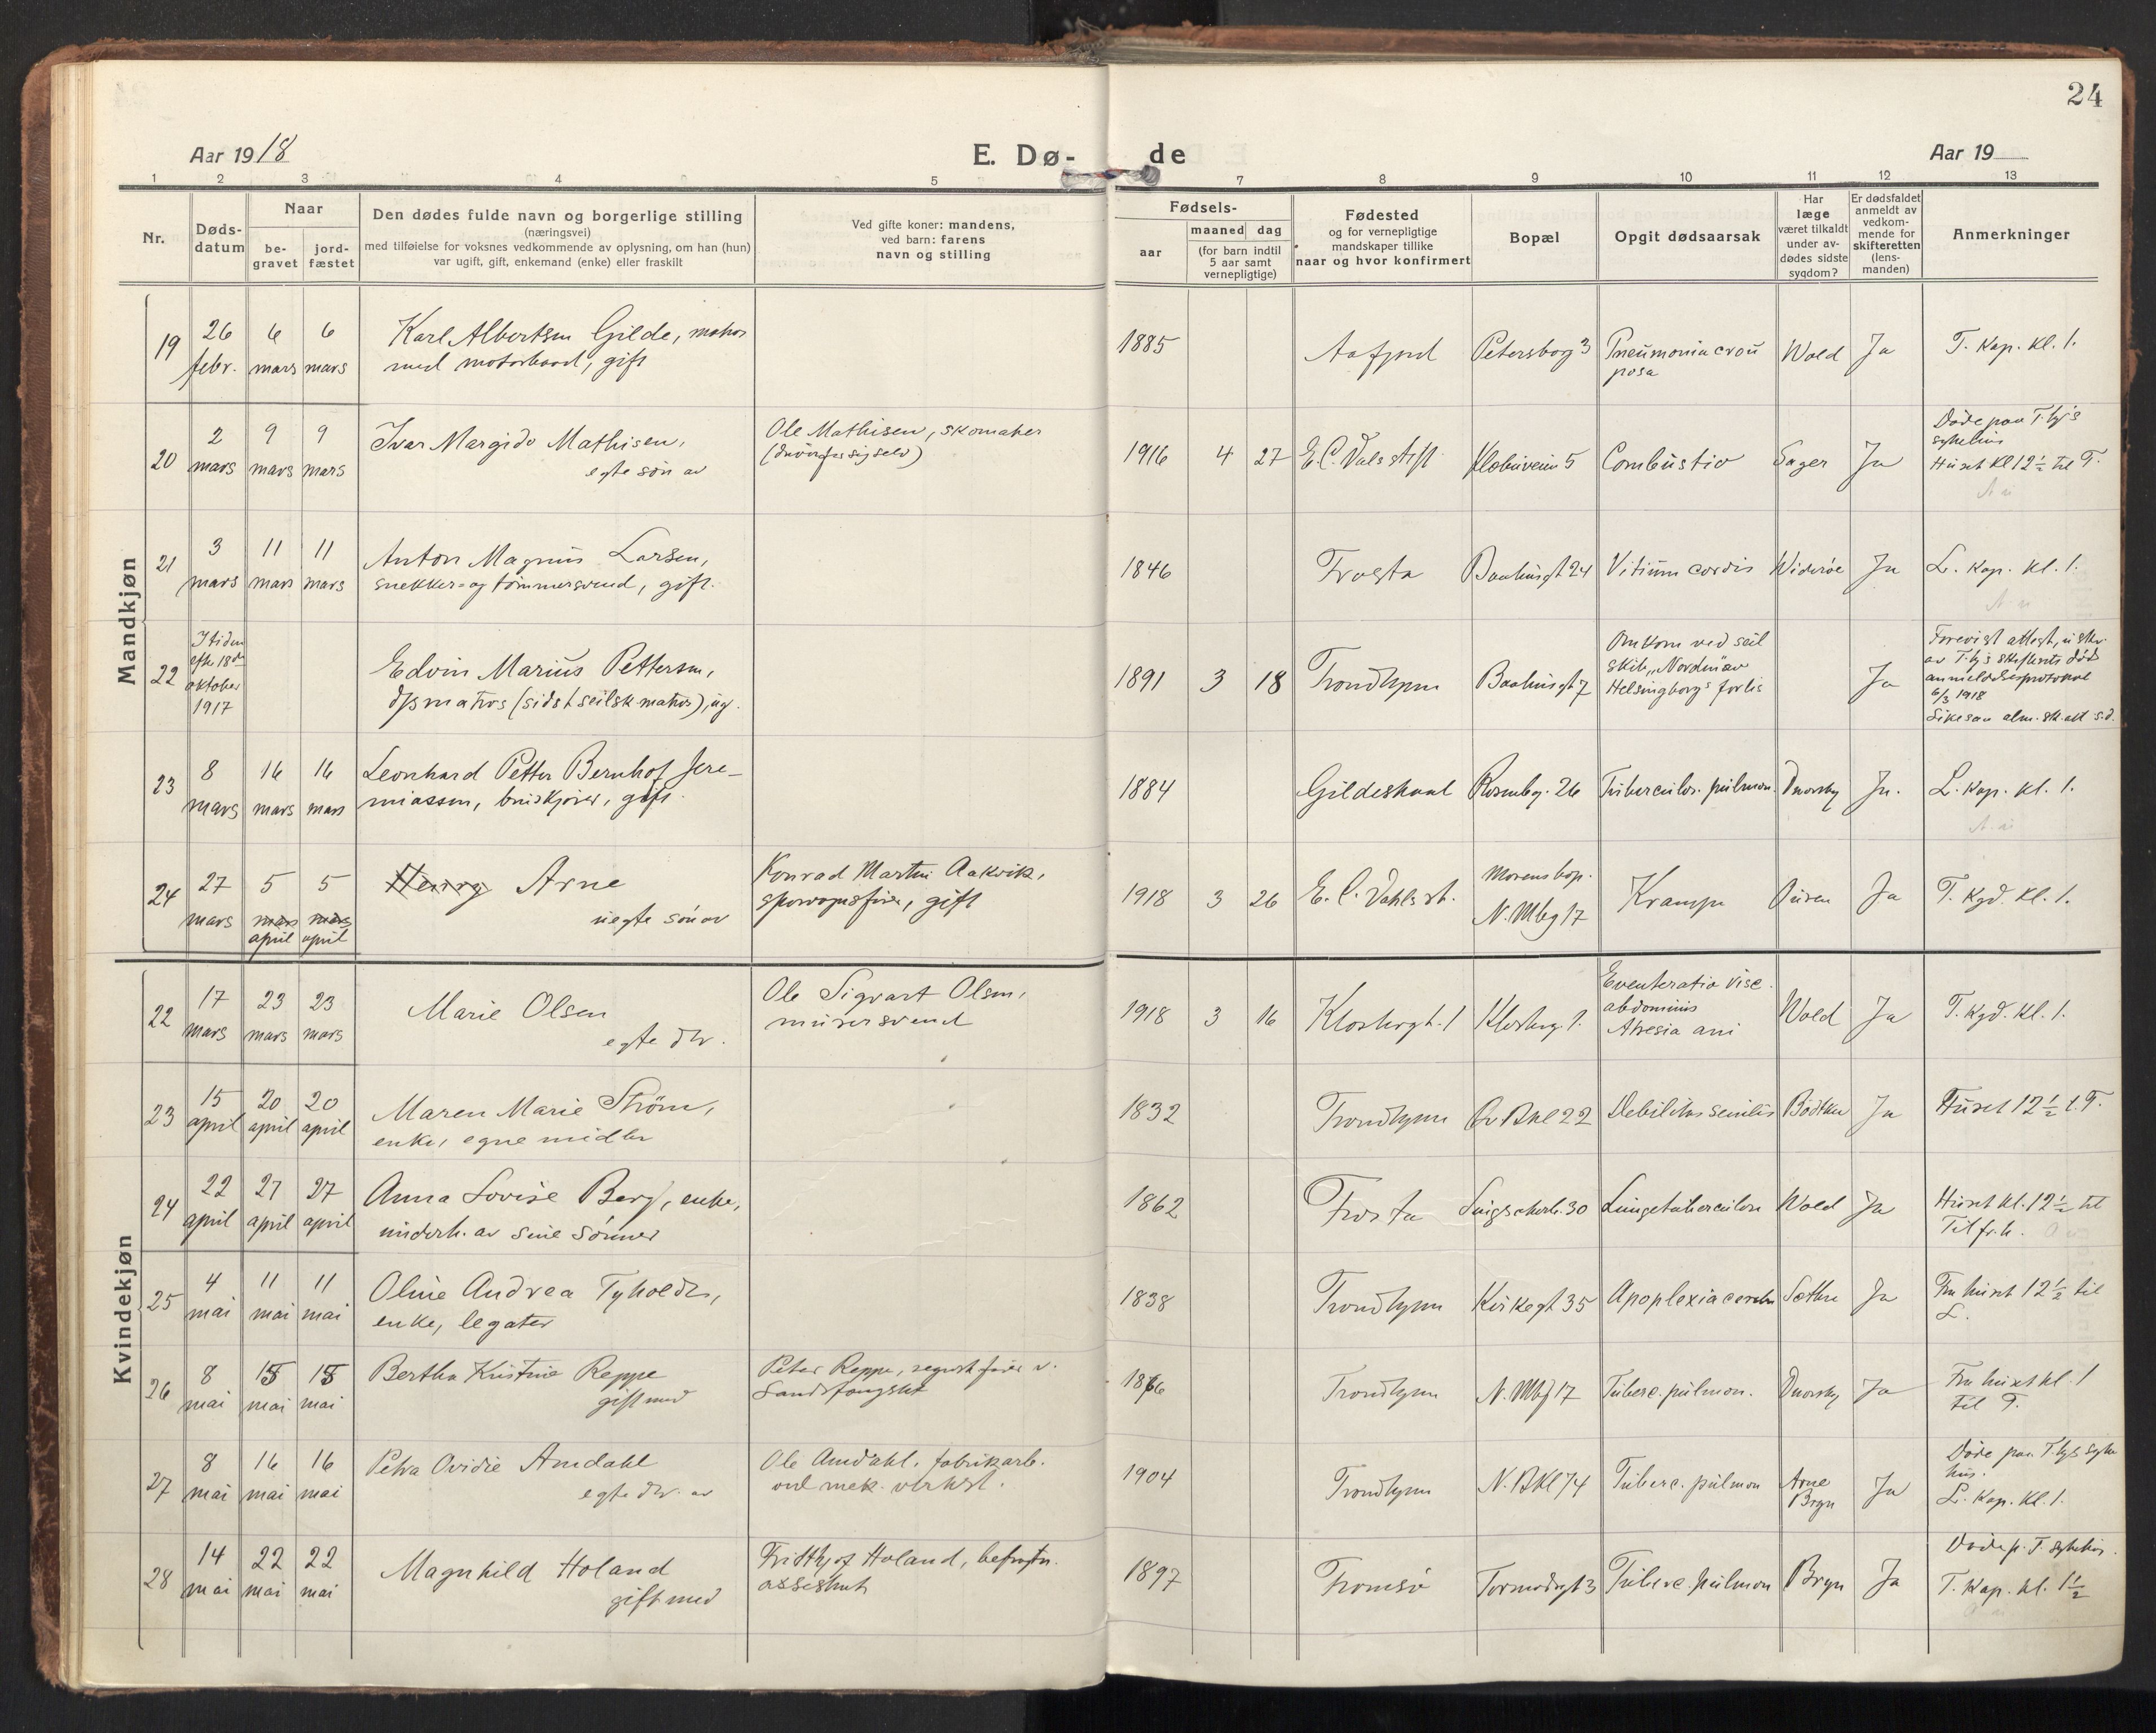 24
Aar 1918
E. Dø- de
Aar 19
1 2 3 4 5 7 8 9 10 11 12 13
Nr.
Døds-
datum
Naar
be-
gravet
jord-
fæstet
Den dødes fulde navn og borgerlige stilling
(næringsvei)
med tilføielse for voksnes vedkommende av oplysning, om han (hun)
var ugift, gift, enkemand (enke) eller fraskilt
Ved gifte koner: mandens,
ved barn: farens
navn og stilling
Fødsels-
aar
maaned dag
(for barn indtil
5 aar samt
vernepligtige)
Fødested
og for vernepligtige
mandskaper tillike
naar og hvor konfirmert
Bopæl
Opgit dødsaarsak
Har
læge
været tilkaldt
under av-
dødes sidste
sygdom?
Er dødsfaldet
anmeldt av
vedkom-
mende for
skifteretten
(lens-
manden)
Anmerkninger
Mandkjøn
19 26 febr. 6 mars 6 mars
Karl Albertsen Gilde,
med motorbaad, gift
1885 Aafjord Petersborg 3 Pneumonia crou
posa
Wold Ja T. kap. kl. 1.
20 2 mars 9 mars 9 mars
Ivar Margido Mathisen,
egte søn av
Ole Mathisen, skomaker
(driver for sig selv)
1916 4 27 E. C. Dals stift. Klæbuveien 5 Combustio Sager Ja
Døde paa T.hjs
sykehus
Huset kl 12½ til T.
21 3 mars 11 mars 11 mars
Anton Magnus Larsen,
snekker- og tømmersvend, gift.
1846 Frosta Baahusgt 24 Vitium cordis Widerøe Ja L. kap. kl. 1.
22 I tiden
efter 18de
oktober
1917
Edvin Marius Pettersen,
d/s matros (sidst seilsk. matros), ug.
1891 3 18 Trondhjem Baahusgt 7
Omkom ved seil
skib „Norden" av
Helsingborgs forlis
Ja
Forevist attest, utskr.
av T.hjs skifterets døds
anmeldelsesprotokol
6/3 1918
23 8 mars 16 mars 16 mars
Leonhard Petter Bernhof Jere-
miassen, gift.
1884 Gildeskaal Rosenbg. 26 Tuberculos. pulmon. Ja. L. kap. kl. 1.
24 27 mars 5 mars april 5 mars april
Henry Arne
uegte søn av
Konrad Martin Aakvik,
sporvognsfører, gift
1918 3 26 E. C. Dahls st.
Morens bop.
N. Mbg 17
Krampe Ja T. kgd. kl. 1.
Kvindekjøn
22 17 mars 23 mars 23 mars
Marie Olsen
egte dtr.
Ole Sigvart Olsen,
murersvend
1918 3 16 Klostergt. 1 Klosterg. 1.
Eventeratio visc.
abdominis
Atresia ani
Wold Ja T. kgd. kl. 1.
23 15 april 20 april 20 april
Maren Marie Strøm,
enke, egne midler
1832 Trondhjem Øv Bkl 22 Debilitas senilis Bödtker Ja Huset 12½ t. T.
24 22 april 27 april 27 april
Anna Lovise Berg, enke,
underh. av sine sønner
1862 Frosta 30 Lungetuberculose Wold Ja Huset kl. 12½ til
Tilfr.h.
25 4 mai 11 mai 11 mai
Oline Andrea Tyholdt,
enke, legater
1838 Trondhjem Kirkegt 35 Apoplexia cerebri Sæthre Ja Fra huset 12½ til
L.
26 8 mai 15 mai 15 mai
Bertha Kristine Reppe
gift med
Peter Reppe, regnsk.fører v.
Landsfængslet
1866 Trondhjem N. Mbg 17 Tuberc. pulmon. Ja Fra huset kl. 1
til T.
27 8 mai 16 mai 16 mai
Petra Ovidie Amdahl
egte dtr. av
Ole Amdahl, fabrikarb.
ved mek. verkst.
1904 Trondhjem N. Bkl 74 Tuberc. pulmon Arne
Bryn
Ja
Døde paa T.hjs syke
hus.
L. kap. kl. 1.
28 14 mai 22 mai 22 mai
Magnhild Holand
gift med
Fridthjof Holand, befragtn.
assistent
1897 Tromsø Tormodsgt 3 Tuberc. pulmon Bryn Ja
Døde p. T. sykehus.
T. kap. kl. 1½